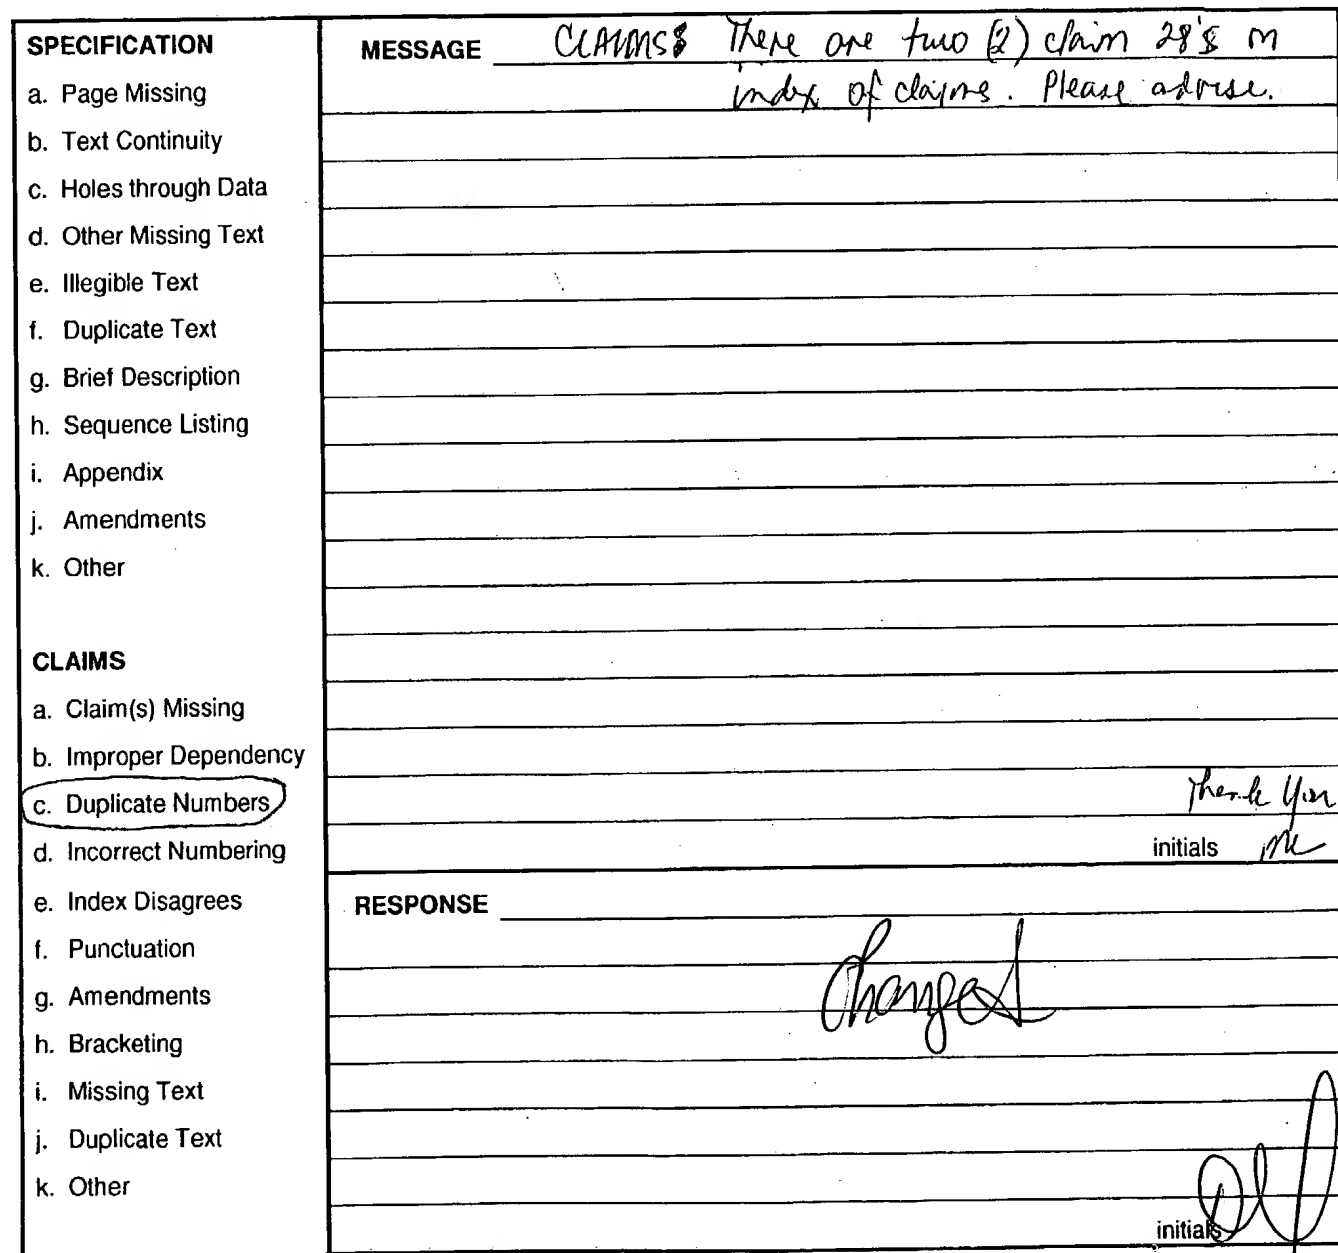 SPECIFICATION
a. Page Missing
b. Text Continuity
c. Holes through Data
d. Other Missing Text
e. Illegible Text
f. Duplicate Text
g. Brief Description
h. Sequence Listing
i. Appendix
j. Amendments
k. Other
CLAIMS
a. Claim(s) Missing
b. Improper Dependency
c. Duplicate Numbers
d. Incorrect Numbering
e. Index Disagrees
f. Punctuation
g. Amendments
h. Bracketing
i. Missing Text
j. Duplicate Text
k. Other
MESSAGE CLAIMS: There are two (2) claim 28's in
index of claims. Please advise.
Thank You
initials
RESPONSE
Changed
initials